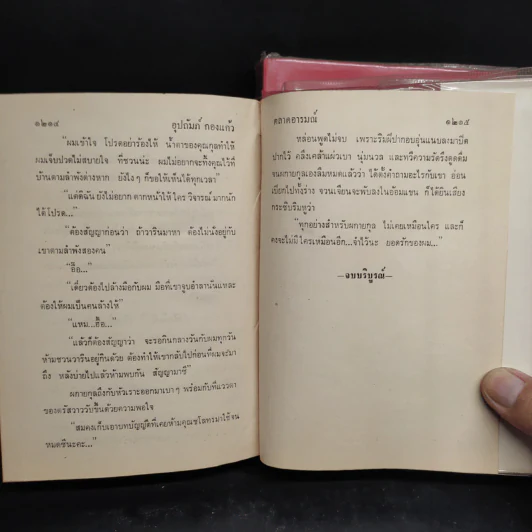 ๑๒๑๔ อุปถัมภ์ กองแก้ว
"ผมเข้าใจ โปรดอย่าร้องไห้ น้ำตาของคุณกูลทำให้
ผมเจ็บปวดไม่สบายใจ ที่ชวนน่ะ ผมไม่อยากจะทิ้งคุณไว้ที่
บ้านตามลำพังต่างหาก ยังไงๆ ก็ขอให้เห็นใต้ทุกเวลา"
"แต่ดิฉัน ยังไม่อยาก ตากหน้าให้ใคร วิจารณ์ มากนัก
ได้โปรด..."
"ต้องสัญญาก่อนว่า ถ้าวารินมาหา ต้องไม่นั่งอยู่กับ
เขาตามลำพังสองคน"
"อื๊อ..."
"เดี๋ยวต้องไปล้างมือกับผม มือที่เขาจูบอำลานั่นแหละ
ต้องให้ผมเป็นคนล้างให้"
"แหม...ฮื้อ..."
"แล้วก็ต้องสัญญาว่า จะรอกินกลางวันกับผมทุกวัน
ห้ามชวนวารินอยู่กินด้วย ต้องทำให้เขากลับไปก่อนที่ผมจะมา
ถึง หลังบ่ายไปแล้วห้ามพบกัน สัญญามาซี"
ผกายกูลถึงกับหัวเราะออกมาเบาๆ พร้อมกับที่แววตา
ของตรัสวาววับขึ้นด้วยความพอใจ
"สมคงเก็บเอาบทบัญญัติที่เคยห้ามคุณชโลทรมาใช้จน
หมดซีนะคะ..."
ตลาดอารมณ์ ๑๒๑๕
หล่อนพูดไม่จบ เพราะริมฝีปากอบอุ่นแนบลงมาปิด
ปากไว้ คลึงเคล้าแผ่วเบา นุ่มนวล และทวีความรัดรึงดูดดื่ม
จนผกายกูลเองลืมหมดแล้วว่า ได้ตั้งคำถามอะไรกับเขา อ่อน
เปียกไปทั้งร่าง จวนเจียนจะพับลงในอ้อมแขน ก็ได้ยินเสียง
กระซิบริมหูว่า
"ทุกอย่างสำหรับผกายกูล ไม่เคยเหมือนใคร และก็
คงจะไม่มีใครเหมือนอีก...จำไว้นะ ยอดรักของผม..."
—จบบริบูรณ์—